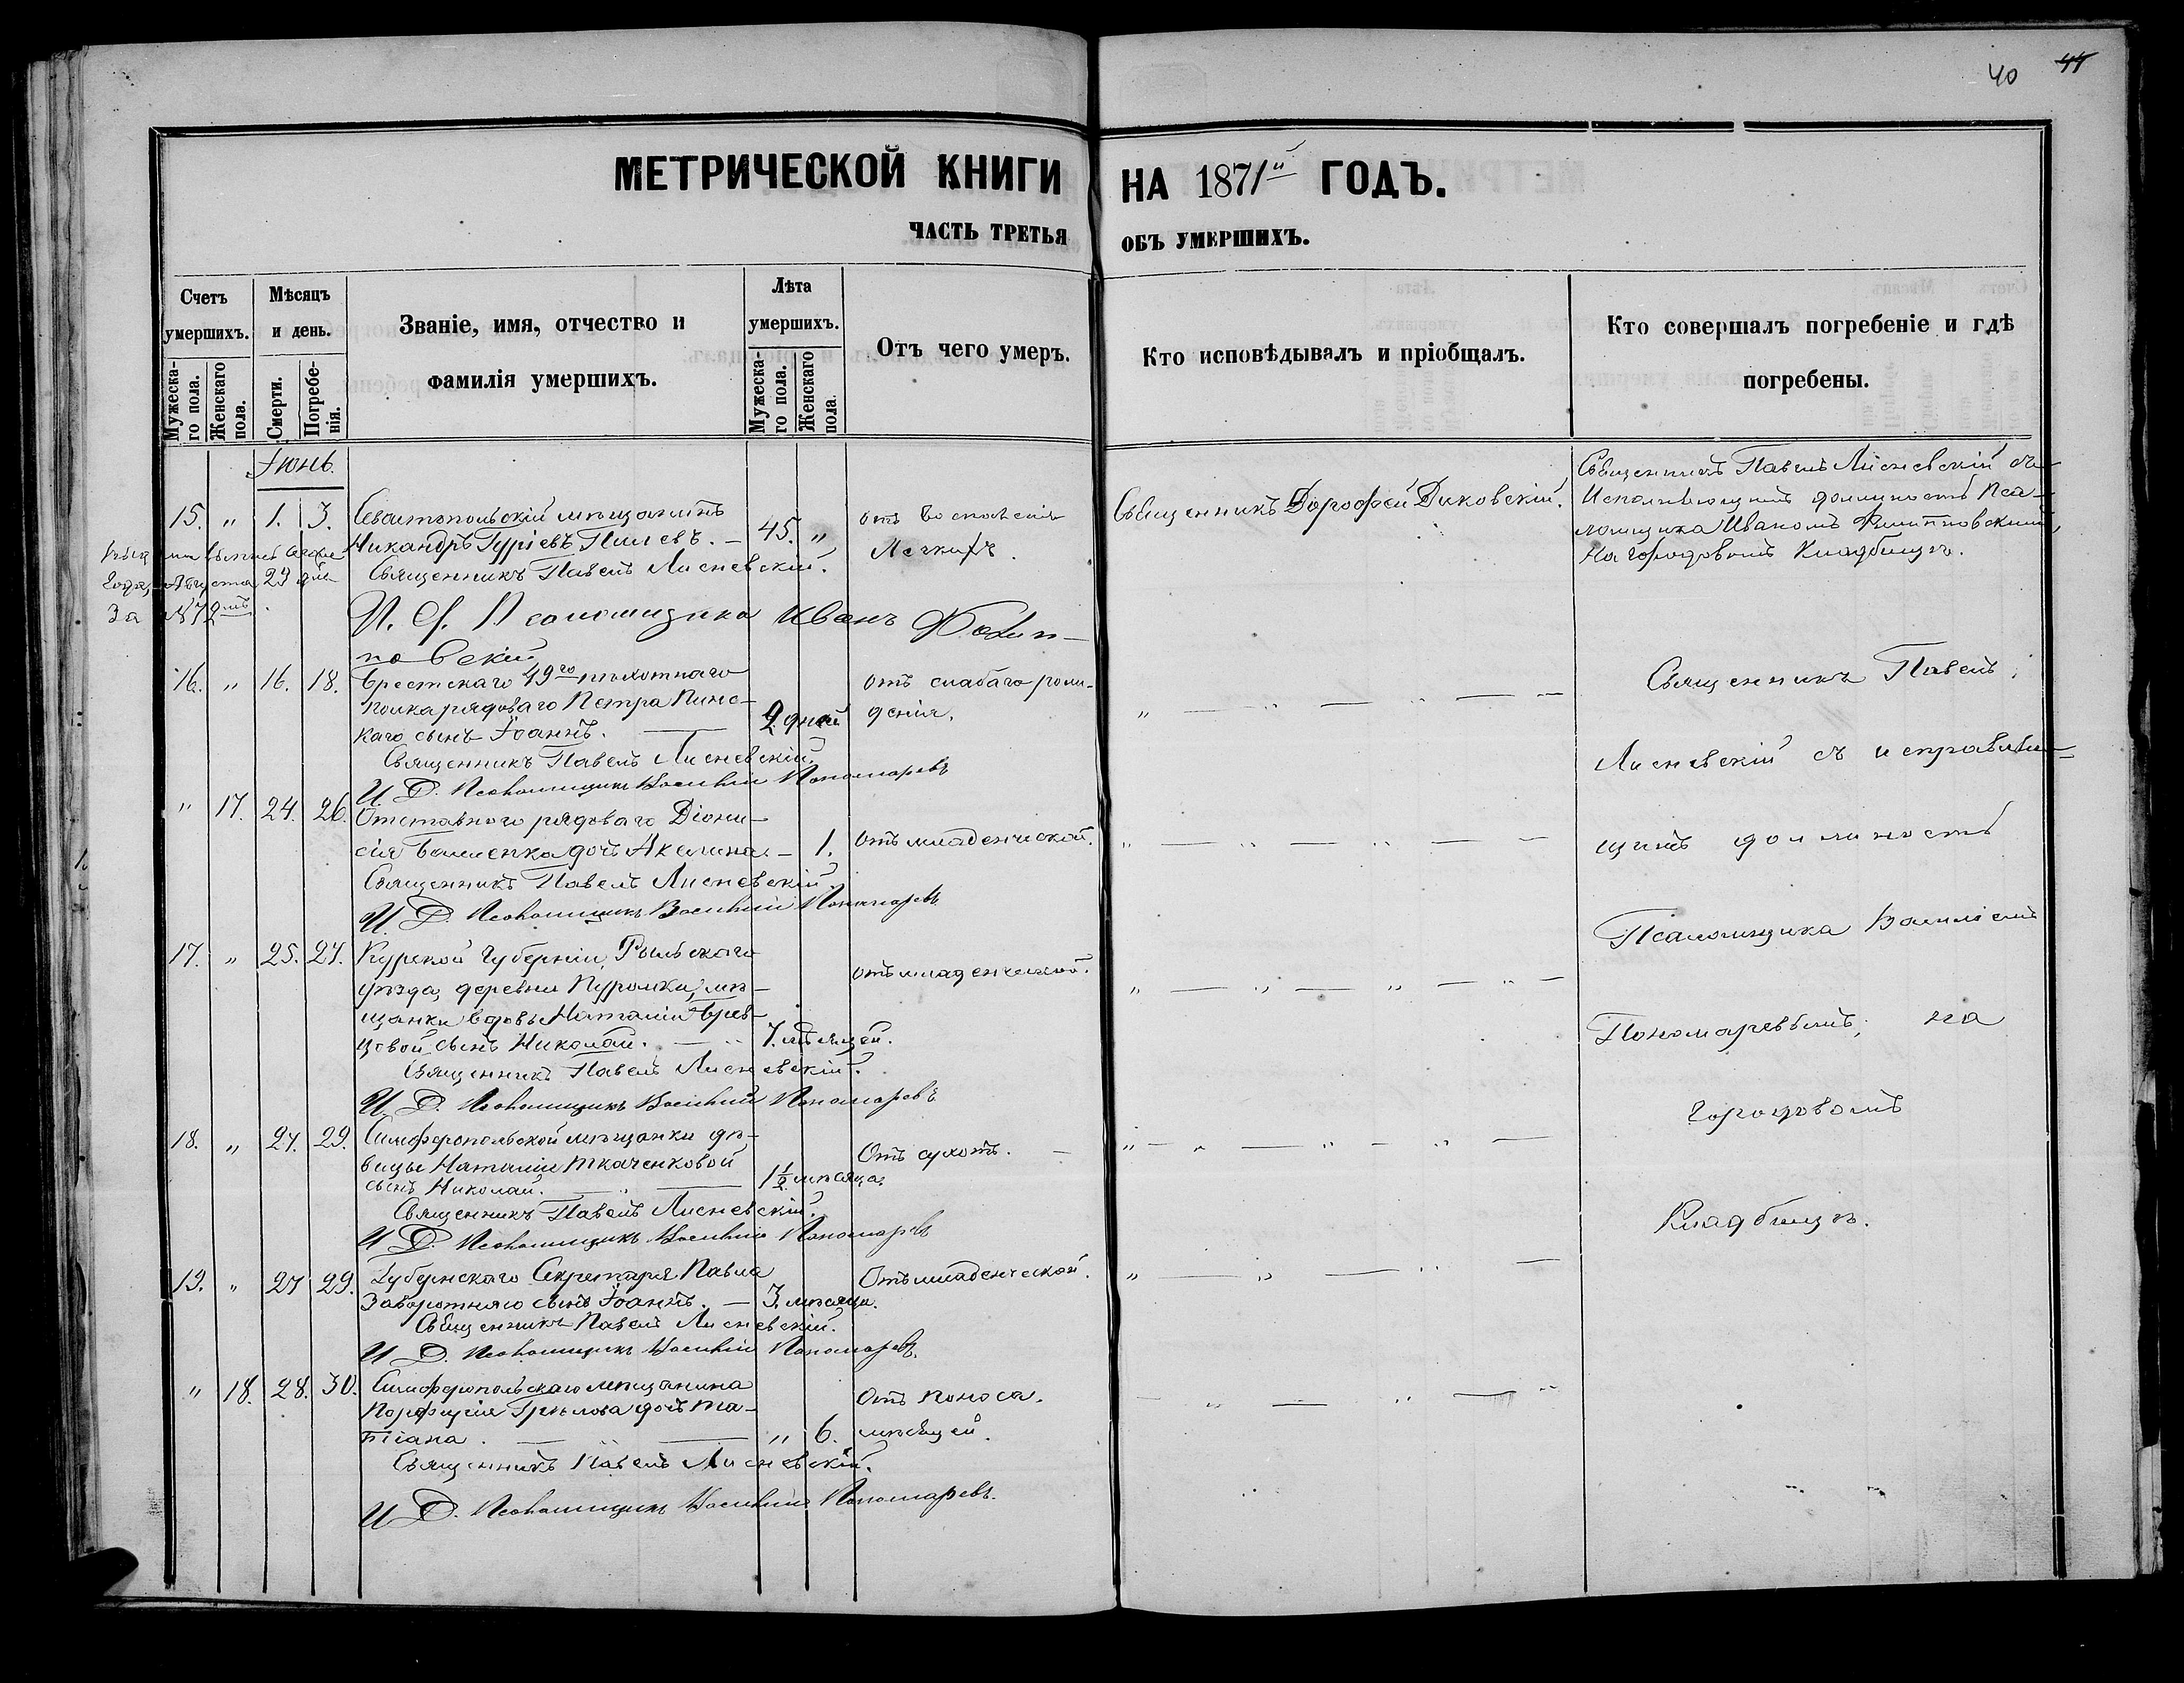 40 44
МЕТРИЧЕСКОЙ КНИГИ НА 1871й ГОДЪ.
ЧАСТЬ ТРЕТЬЯ ОБЪ УМЕРШИХЪ.
Счетъ умершихъ.
Мужеска-го пола.
Женскаго пола.
Мѣсяцъ и день.
Смерти.
Погребе-нія.
Званіе, имя, отчество и фамилія умершихъ.
Лѣта умершихъ.
Мужеска-го пола.
Женскаго пола.
Отъ чего умеръ.
Кто исповѣдывалъ и пріобщалъ.
Кто совершалъ погребеніе и гдѣ погребены.
Іюнь.
15. " 1. 3. Севастопольскій мѣщанинъ
Никандръ Гуріевъ — 45. "
отъ воспаленія
Легкихъ.
Священникъ Дорофей Диковскій.
Священникъ Павелъ Лисневскій съ
Исполняющимъ должность Пса-
ломщика Иваномъ Филипповскимъ,
на городовомъ Кладбищѣ.
года, Августа 27 дня
За № 72мъ.
Священникъ Павелъ Лисневскій.
И. Д. Псаломщика Иванъ Филип-
повскій
16. " 16. 18. Брестскаго 49го пѣхотнаго
полка рядоваго Петра Пинс-
каго сынъ Іоаннъ. — 2 дней
отъ слабаго рож-
денія.
Священникъ Павелъ Лисневскій.
И. Д. Псаломщикъ Василій Пономаревъ
" 17. 24. 26. Отставного рядоваго Діони-
сія дочь Акилина. — 1.
отъ младенческой.
Священникъ Павелъ Лисневскій.
И. Д. Псаломщикъ Василій Пономаревъ
17. " 25. 27. Курской Губерніи, Рыльскаго
уѣзда, деревни мѣ-
щанки вдовы Наталіи
цовой сынъ Николай. — 7. мѣсяцей.
отъ младенческой.
Священникъ Павелъ Лисневскій.
И. Д. Псаломщикъ Василій Пономаревъ
18. " 27. 29. Симферопольской мѣщанки дѣ-
вицы Наталіи Ткаченковой
сынъ Николай. — 1½ мѣсяца.
Отъ сухотъ.
Священникъ Павелъ Лисневскій.
И. Д. Псаломщикъ Василій Пономаревъ
19. " 27 29. Губернскаго Секретаря Павла
Заворотняго сынъ Іоаннъ. — 3. мѣсяца.
Отъ младенческой.
Священникъ Павелъ Лисневскій.
И. Д. Псаломщикъ Василій Пономаревъ.
" 18. 28. 30. Симферопольскаго мѣщанина
Порфирія дочь Та-
тіана. — " 6. мѣсяцей.
Отъ поноса.
Священникъ Павелъ Лисневскій.
И. Д. Псаломщикъ Василій Пономаревъ.
Священникъ Павелъ
Лисневскій съ исправляю-
щимъ должность
Псаломщика Василіемъ
Пономаревымъ, на
городовомъ
Кладбищѣ.